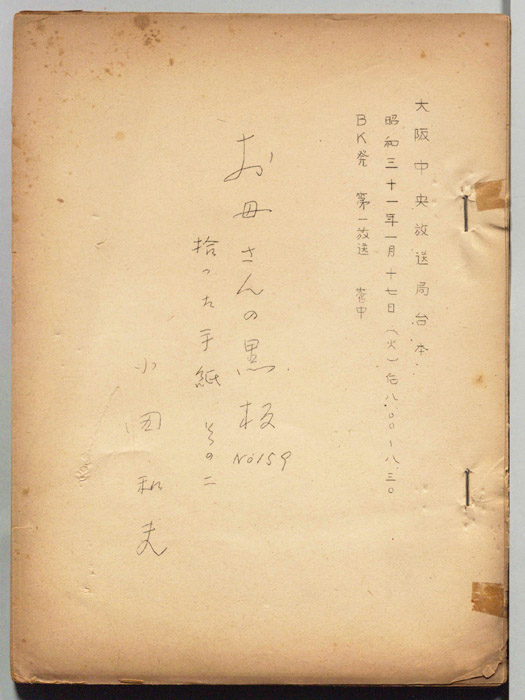 大阪中央放送局台本
昭和三十一年一月十七日(火)后八.〇〇〜八.三〇
BK発 第一放送 管中
お母さんの黒板 No159
拾った手紙 その二
小田和夫